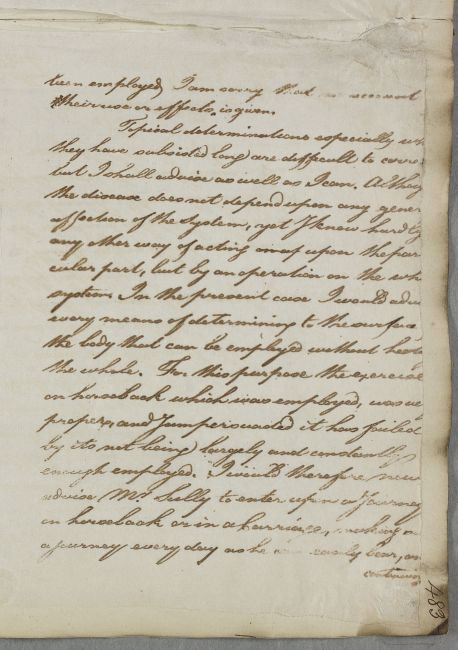 been employed, I am sorry that no account
their use or effects is given.
Topical determinations especially wh
they have subsisted long are difficult to corre
but I shall advise as well as I can. Althoug
the disease does not depend upon any gener
affection of the system, yet I know hardly
any other way of acting on up upon the par
cular part, but by an operation on the wh
system. In the present case I would adv
every means of determining to the surface
the body that can be employed without heat
the whole. For this purpose the exercise
on horseback which was employed, was ve
proper, and I am persuaded it has failed
by its not being largely and constantly
enough employed. I would therefore now
advise Mr. Lully to enter upon a Journey
on horseback or in a Carriage, making
a journey every day as he can easily bear, an
continuing
483